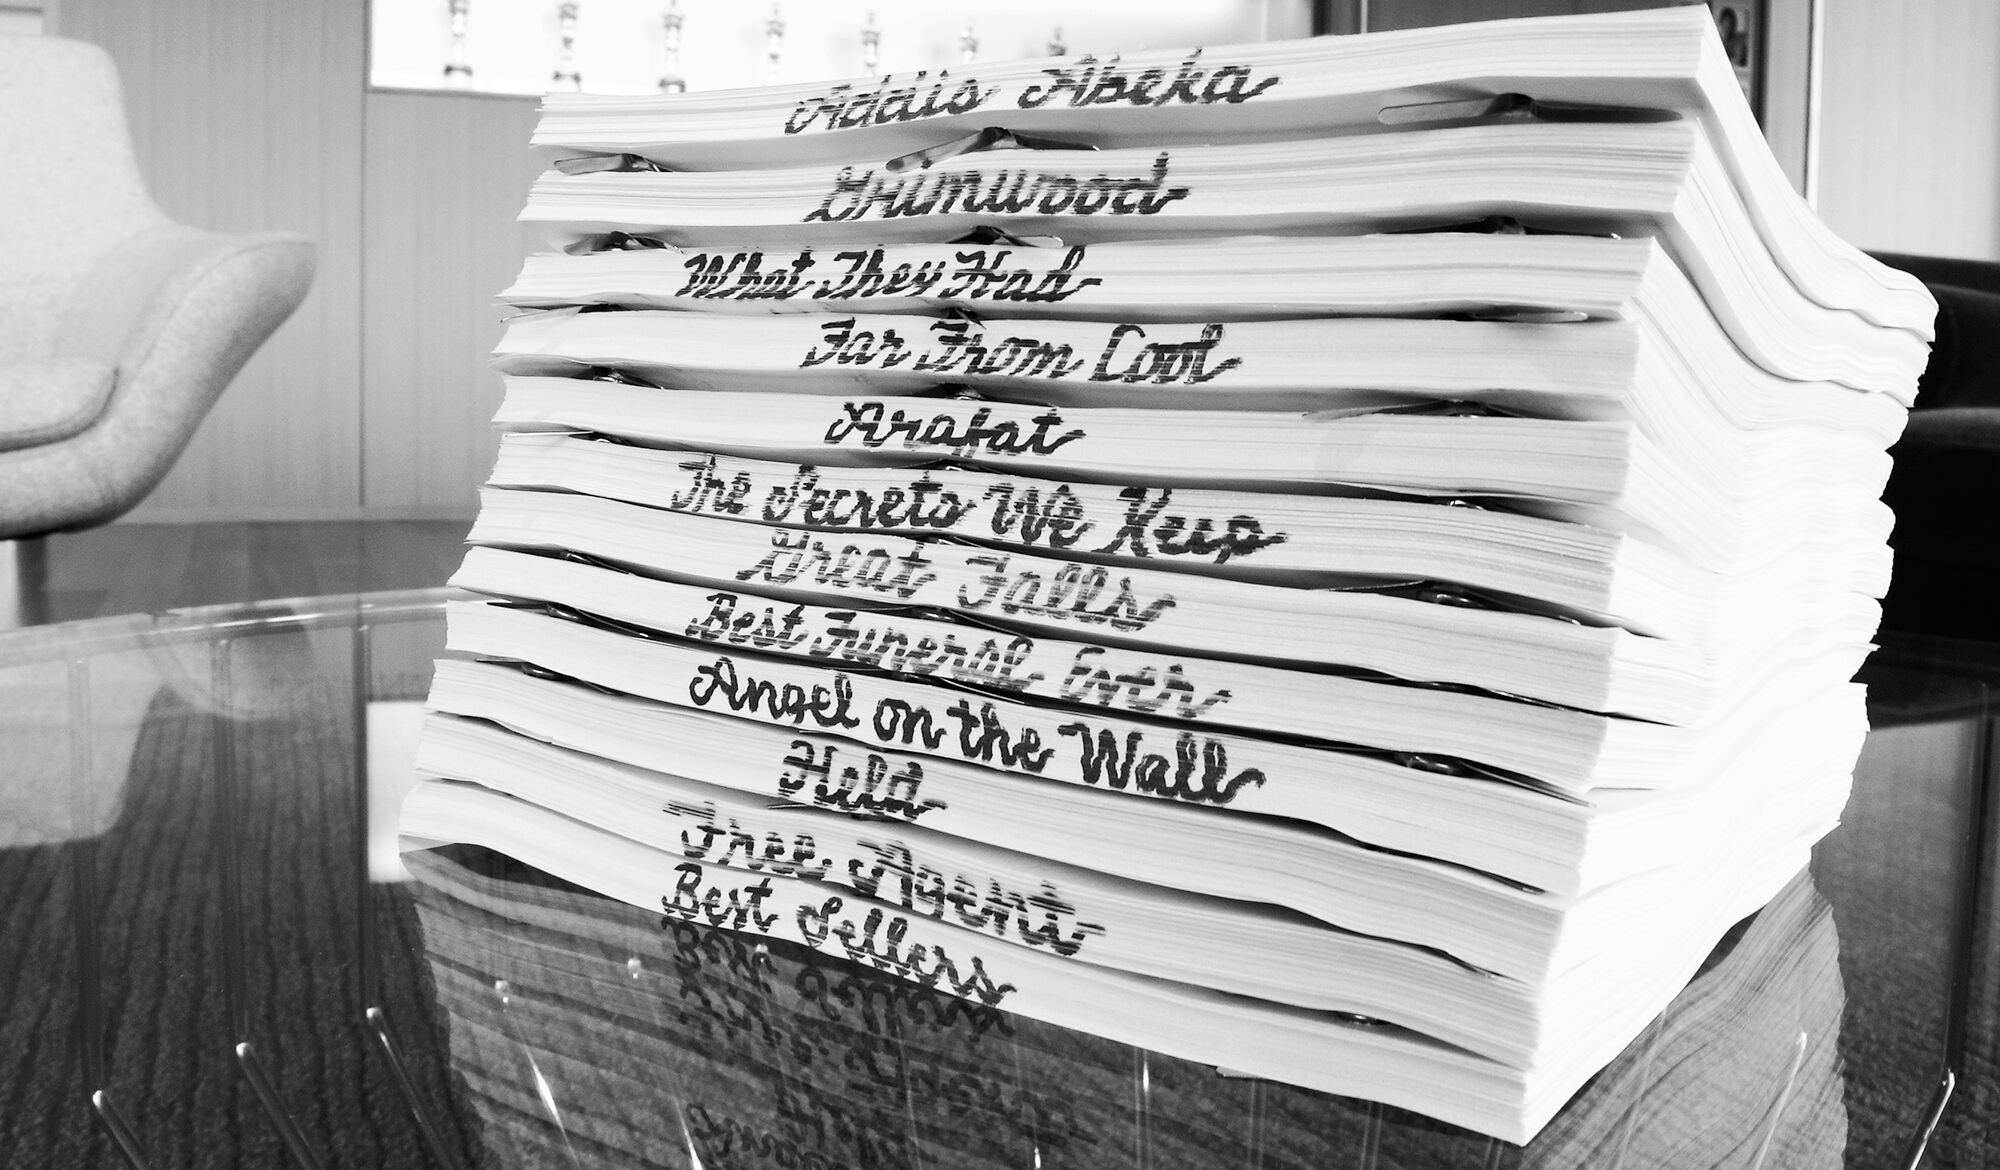 Addis Abeka
Grimwood
What They Had
Far From Cool
Arafat
The Secrets We Keep
Great Falls
Best Funeral Ever
Angel on the Wall
Held
Free Agent
Best Sellers